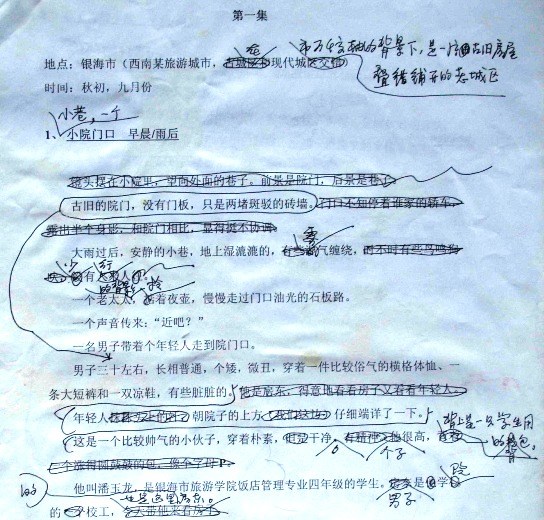 第一集
在 市万幢 的背景下，是一片古旧房屋
地点：银海市（西南某旅游城市，古城区和现代城区交错） 老城区
时间：秋初，九月份
小巷，一个
1、小院门口 早晨/雨后
镜头摆在小院里，望向外面的巷子。前景是院门，后景是巷子。
古旧的院门，没有门板，只是两堵斑驳的砖墙。门口不知停着谁家的轿车，
露出半个身影，和院门相比，显得挺不协调。
大雨过后，安静的小巷，地上湿漉漉的，有些雾气缠绕，而不时有些鸟鸣狗
少 行
有 人
一个老太太，拎着夜壶，慢慢走过门口油光的石板路。
一个声音传来：“近吧？”
一名男子带着个年轻人走到院门口。
男子三十左右，长相普通，个矮，微丑，穿着一件比较俗气的横格体恤、一
条大短裤和一双凉鞋，有些脏脏的。他是房东，得意地看看房子又看看年轻人。
年轻人 朝院子的上方 仔细端详了一下。 背上是一只学生用
这是一个比较帅气的小伙子，穿着朴素，但是干净，有精神，他很高， 的 包。
个子 背
个涨得圆鼓鼓的包，像个字母P。
他叫潘玉龙，是银海市旅游学院饭店管理专业四年级的学生。 是 学院
的 也是这里房东。 男子
的 校工， 人带他来看房子